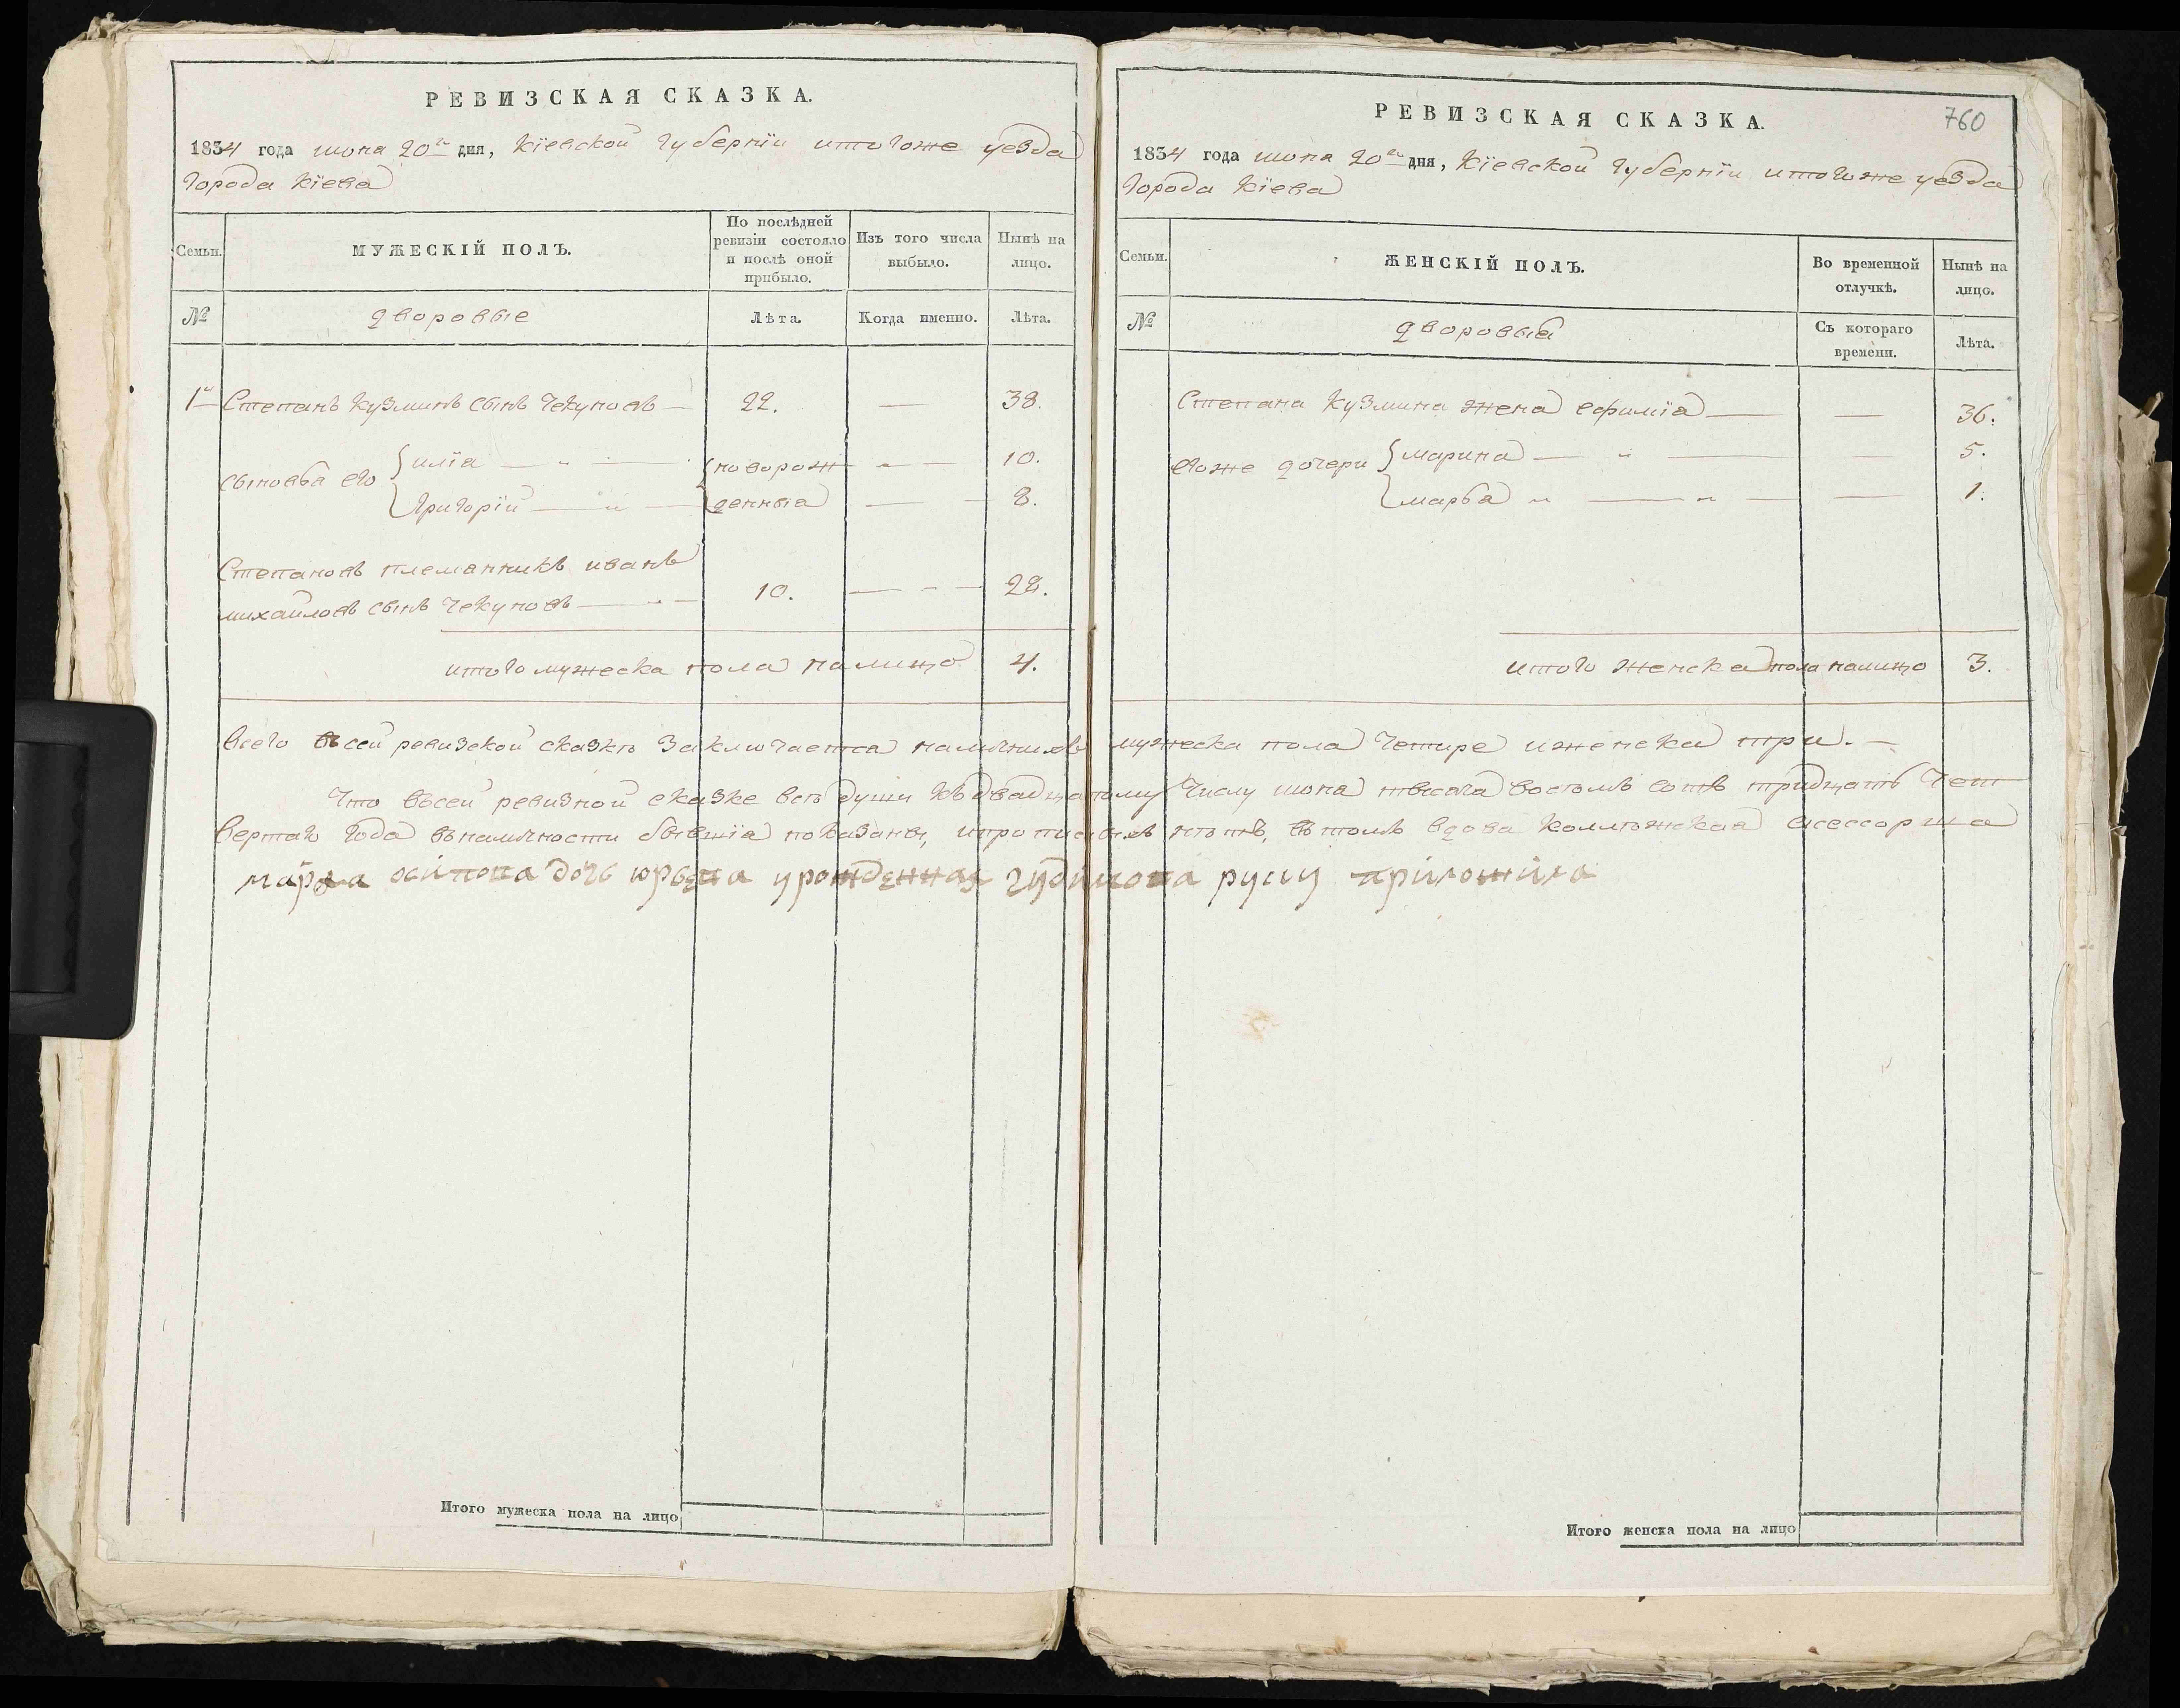 РЕВИЗСКАЯ СКАЗКА.
1834 года июня 20го дня, Кіевской губерніи итогоже уезда
города Кіева
Семьи.
МУЖЕСКІЙ ПОЛЪ.
По послѣдней ревизіи состояло и послѣ оной прибыло.
Изъ того числа выбыло.
Нынѣ на лицо.
№
дворовые
Лѣта.
Когда именно.
Лѣта.
1й Степанъ Кузминъ сынъ Чекуновъ — 22. — 38.
сыновья его
илія — новорож — 10.
григорій — денныя — 8.
Степановъ племянникъ иванъ
михайловъ сынъ Чекуновъ — 10. — 28.
итого мужеска пола налицо 4.
РЕВИЗСКАЯ СКАЗКА.
760
1834 года июня 20го дня, Кіевской губерніи итогоже уезда
города Кіева
Семьи.
ЖЕНСКІЙ ПОЛЪ.
Во временной отлучкѣ.
Нынѣ на лицо.
№
дворовыя
Съ котораго времени.
Лѣта.
Степана Кузмина жена ефимія — — 36.
егоже дочери
марина — 5.
марѳа — — 1.
итого женска пола налицо 3.
всего въсей ревизской сказкѣ заключается наличныхъ мужеска пола Четире иженска три. —
Что въсей ревизной сказке всѣ души къ двадцатому Числу июня тысяча восемъ сотъ тридцать Чет
вертаго года въналичности бывшія показаны, ипрописныхъ нѣтъ, въ томъ вдова коллежская асессорша
марѳа осипова дочь юрьева урожденная гудимова руку приложила
Итого мужеска пола на лицо
Итого женска пола на лицо